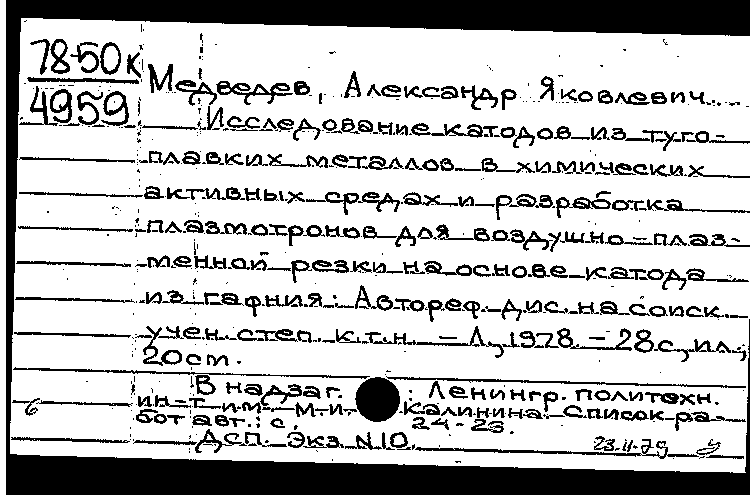 78-50к
4959
Медведев, Александр Яковлевич.
Исследование катодов из туго-
плавких металлов в химически
активных средах и разработка
плазмотронов для воздушно-плаз-
менной резки на основе катода
из гафния: Автореф. дис. на соиск.
учен. степ. к.т.н. – Л., 1978. – 28 с., ил.;
20 см.
В надзаг.: Ленингр. политехн.
ин-т им. М.И. Калинина. Список ра-
бот авт.: с. 24-23.
ДСП. Экз N 10.
23.11.79
6